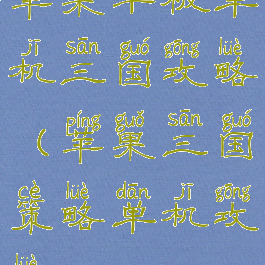 苹果平板单
jī sān guó gōng lüè
机三国攻略
píng guǒ sān guó
（苹果三国
cè lüè dān jī gōng
策略单机攻
lüè